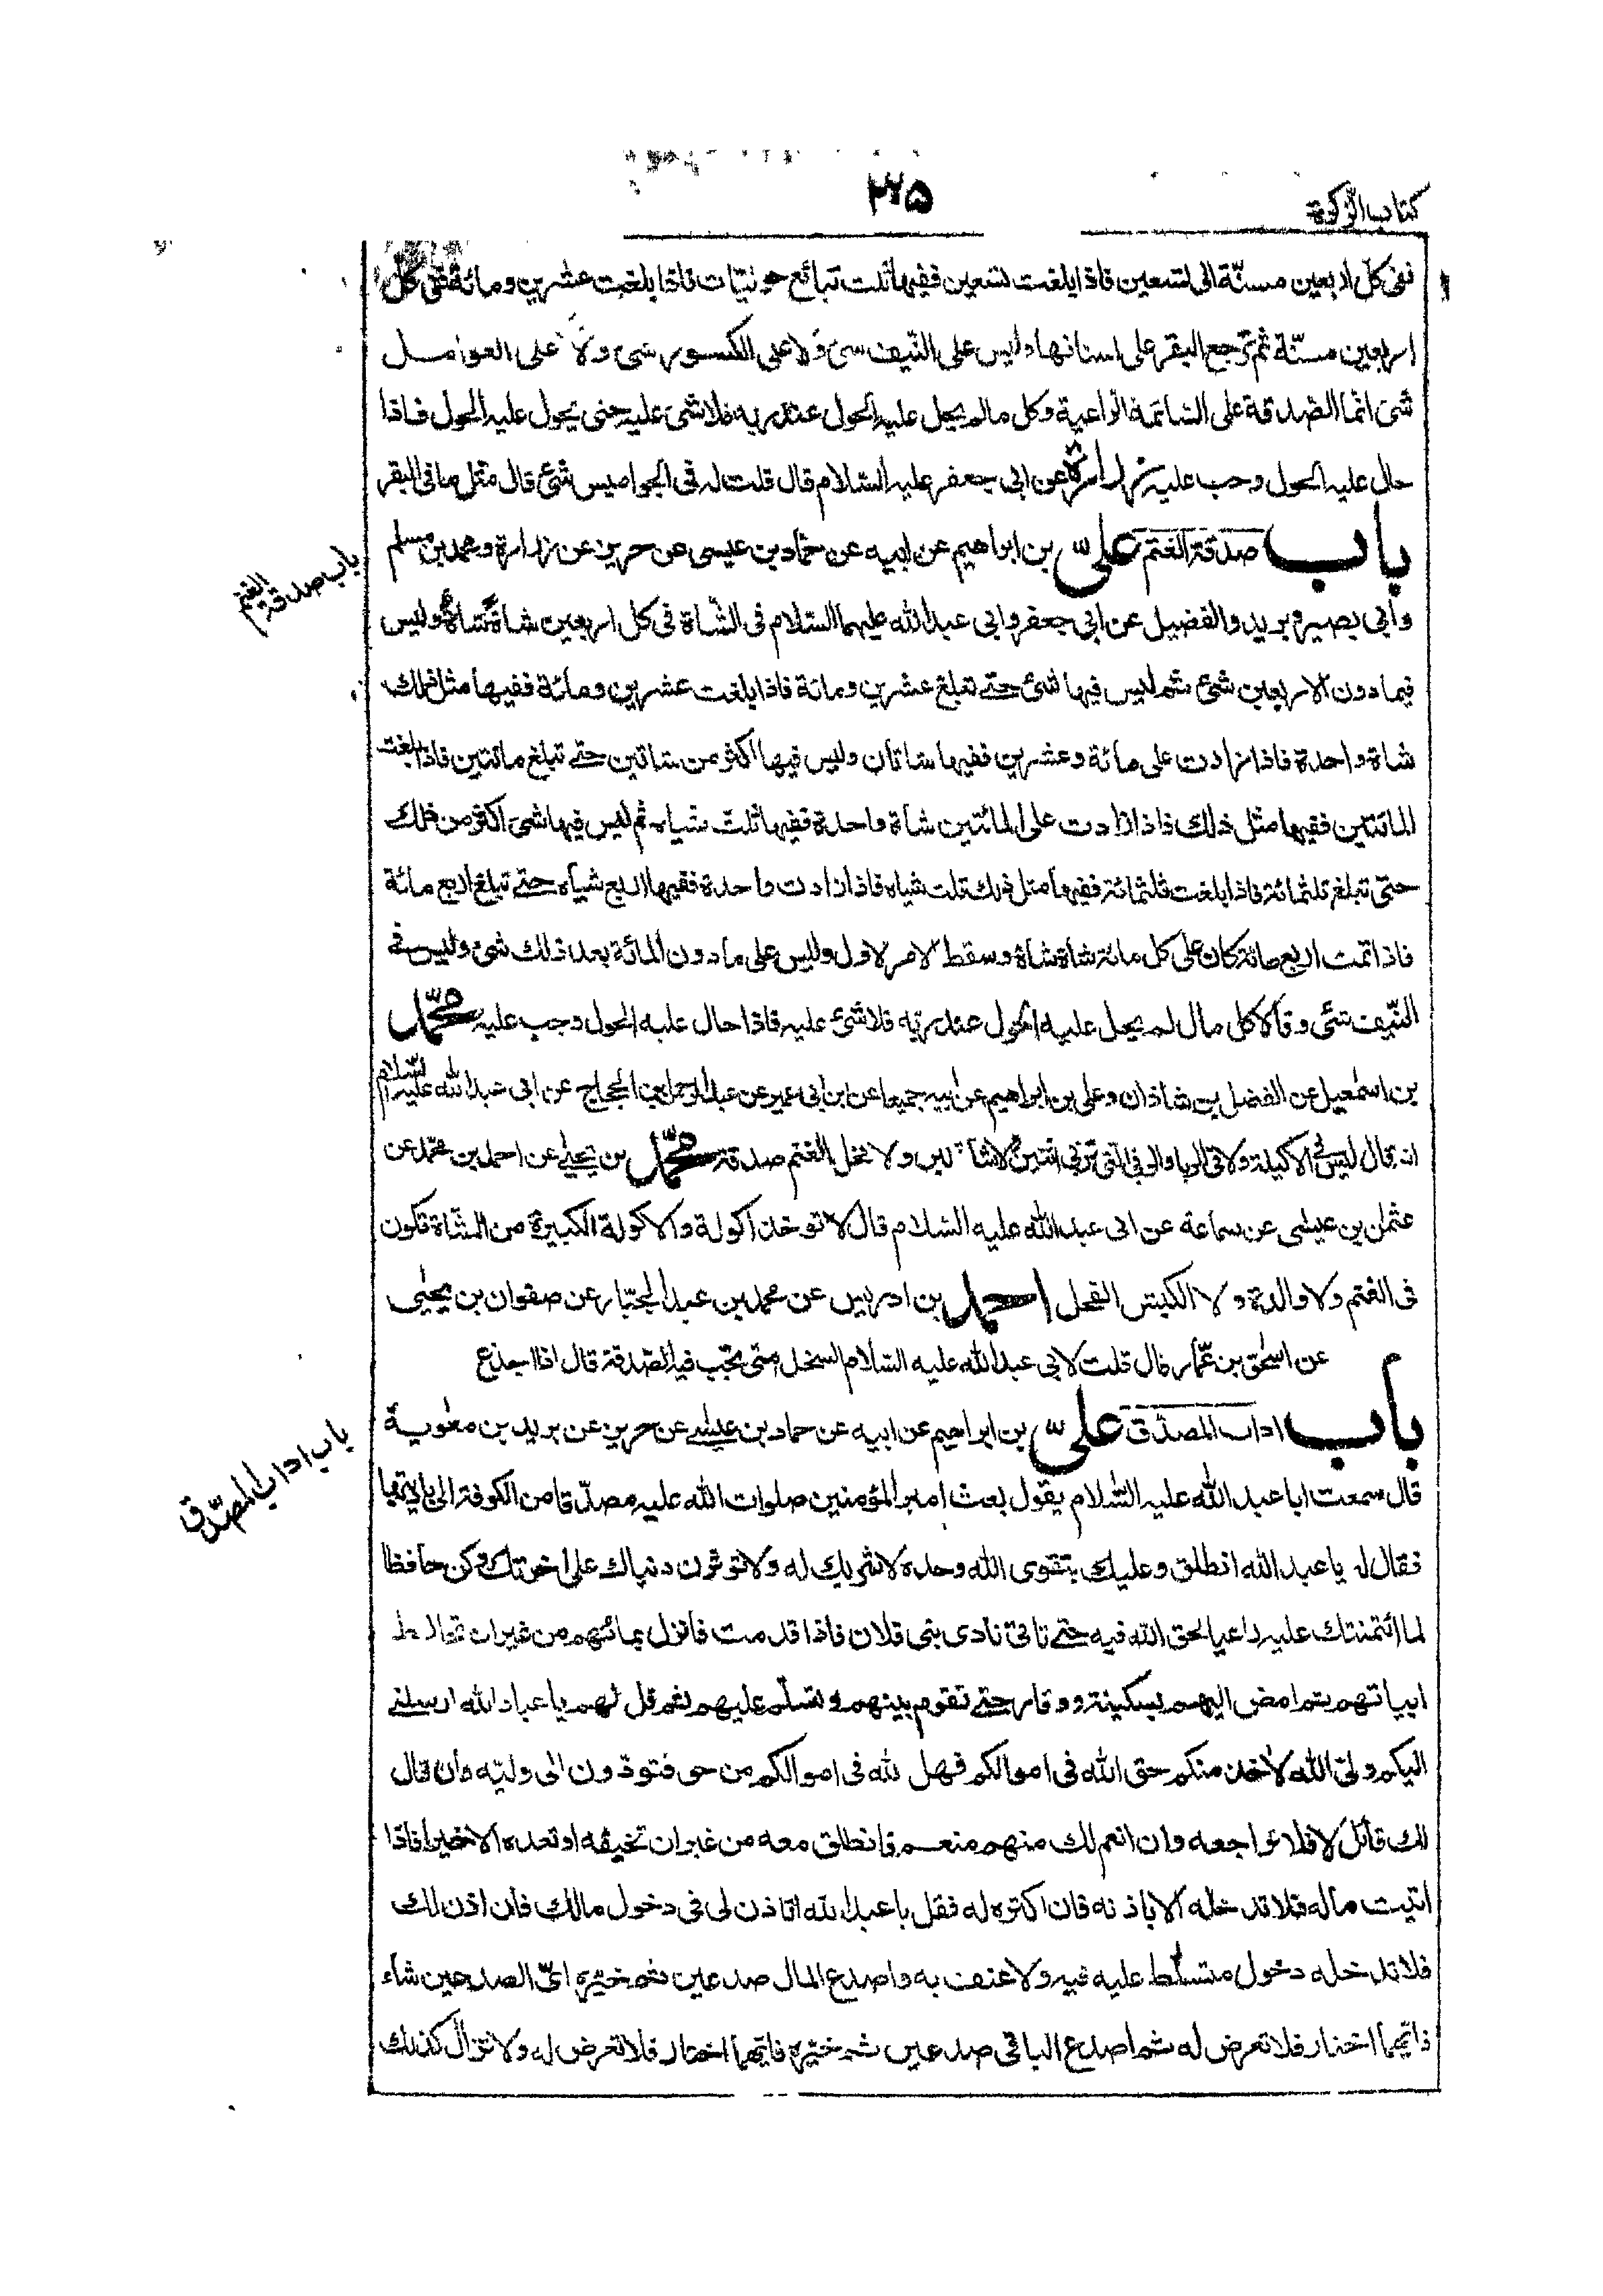 كتاب الزكوة
٣٢٥
ففى كل اربعين مسنّة الى تسعين فاذا بلغت تسعين ففيها ثلث تبائع حوليّات فاذا بلغت عشرين ومائة ففى كل
اربعين مسنّة ثم ترجع البقر على اسنانها وليس على النّيف شئ ولا على الكسور شئ ولا على العوامل
شئ انما الصّدقة على السّائمة الرّاعية وكل ما لم يحل عليه الحول عند ربه فلا شئ عليه حتى يحول عليه الحول فاذا
حال عليه الحول وجب عليه زرارة عن ابى جعفر عليه السّلام قال قلت له فى الجواميس شئ قال مثل ما فى البقر
باب صدقة الغنم علىّ بن ابراهيم عن ابيه عن حمّاد بن عيسى عن حريز عن زرارة ومحمد بن مسلم
باب صدقة الغنم
وابى بصير وبريد والفضيل عن ابى جعفر وابى عبد الله عليهما السّلام فى الشّاة فى كل اربعين شاة شاة وليس
فيما دون الاربعين شئ ثم ليس فيها شئ حتى تبلغ عشرين ومائة فاذا بلغت عشرين ومائة ففيها مثل ذلك
شاة واحدة فاذا زادت على مائة وعشرين ففيها شاتان وليس فيها اكثر من شاتين حتى تبلغ مائتين فاذا بلغت
المائتين ففيها مثل ذلك فاذا زادت على المائتين شاة واحدة ففيها ثلث شياه ثم ليس فيها شئ اكثر من ذلك
حتى تبلغ ثلثمائة فاذا بلغت ثلثمائة ففيها مثل ذلك ثلث شياه فاذا زادت واحدة ففيها اربع شياه حتى تبلغ اربع مائة
فاذا تمت اربع مائة كان على كل مائة شاة شاة وسقط الامر الاول وليس على ما دون المائة بعد ذلك شئ وليس فى
النّيف شئ وقالا كل مال لم يحل عليه الحول عند ربّه فلا شئ عليه فاذا حال عليه الحول وجب عليه محمّد
بن اسمعيل عن الفضل بن شاذان وعلى بن ابراهيم عن ابيه جميعا عن ابن ابى عمير عن عبد الرحمن بن الحجاج عن ابى عبد الله عليه السّلام
انه قال ليس فى الاكيلة ولا فى الربا والربى التى تربى اثنين ولا شاة لبن ولا فحل الغنم صدقة محمّد بن يحيى عن احمد بن محمّد عن
عثمن بن عيسى عن سماعة عن ابى عبد الله عليه السّلام قال لا تؤخذ اكولة والاكولة الكبيرة من الشّاة تكون
فى الغنم ولا والدة ولا الكبش الفحل احمد بن ادريس عن محمد بن عبد الجبّار عن صفوان بن يحيى
عن اسحق بن عمّار قال قلت لابى عبد الله عليه السّلام السخل متى تجب فيه الصّدقة قال اذا اجذع
باب اداب المصدّق علىّ بن ابراهيم عن ابيه عن حماد بن عيسى عن حريز عن بريد بن معوية
باب اداب المصدّق
قال سمعت ابا عبد الله عليه السّلام يقول بعث امير المؤمنين صلوات الله عليه مصدّقا من الكوفة الى باديتها
فقال له يا عبد الله انطلق وعليك بتقوى الله وحده لا شريك له ولا تؤثرن دنياك على اخرتك وكن حافظا
لما ائتمنتك عليه راعيا لحق الله فيه حتى تاتى نادى بنى فلان فاذا قدمت فانزل بمائهم من غير ان تخالط
ابياتهم ثم امض اليهم بسكينة ووقار حتى تقوم بينهم وتسلّم عليهم ثم قل لهم يا عباد الله ارسلنى
اليكم ولىّ الله لاخذ منكم حق الله فى اموالكم فهل لله فى اموالكم من حق فتودّون الى وليّه فان قال
لك قائل لا فلا تراجعه وان انعم لك منهم منعم فانطلق معه من غير ان تخيفه او تعده الا خيرا فاذا
اتيت ماله فلا تدخله الا باذنه فان اكثره له فقل يا عبد الله اتاذن لى فى دخول مالك فان اذن لك
فلا تدخله دخول متسلّط عليه فيه ولا عنف به واصدع المال صدعين ثم خيّره اىّ الصدعين شاء
فايّهما اختار فلا تعرض له ثم اصدع الباقى صدعين ثم خيّره فايّهما اختار فلا تعرض له ولا تزال كذلك